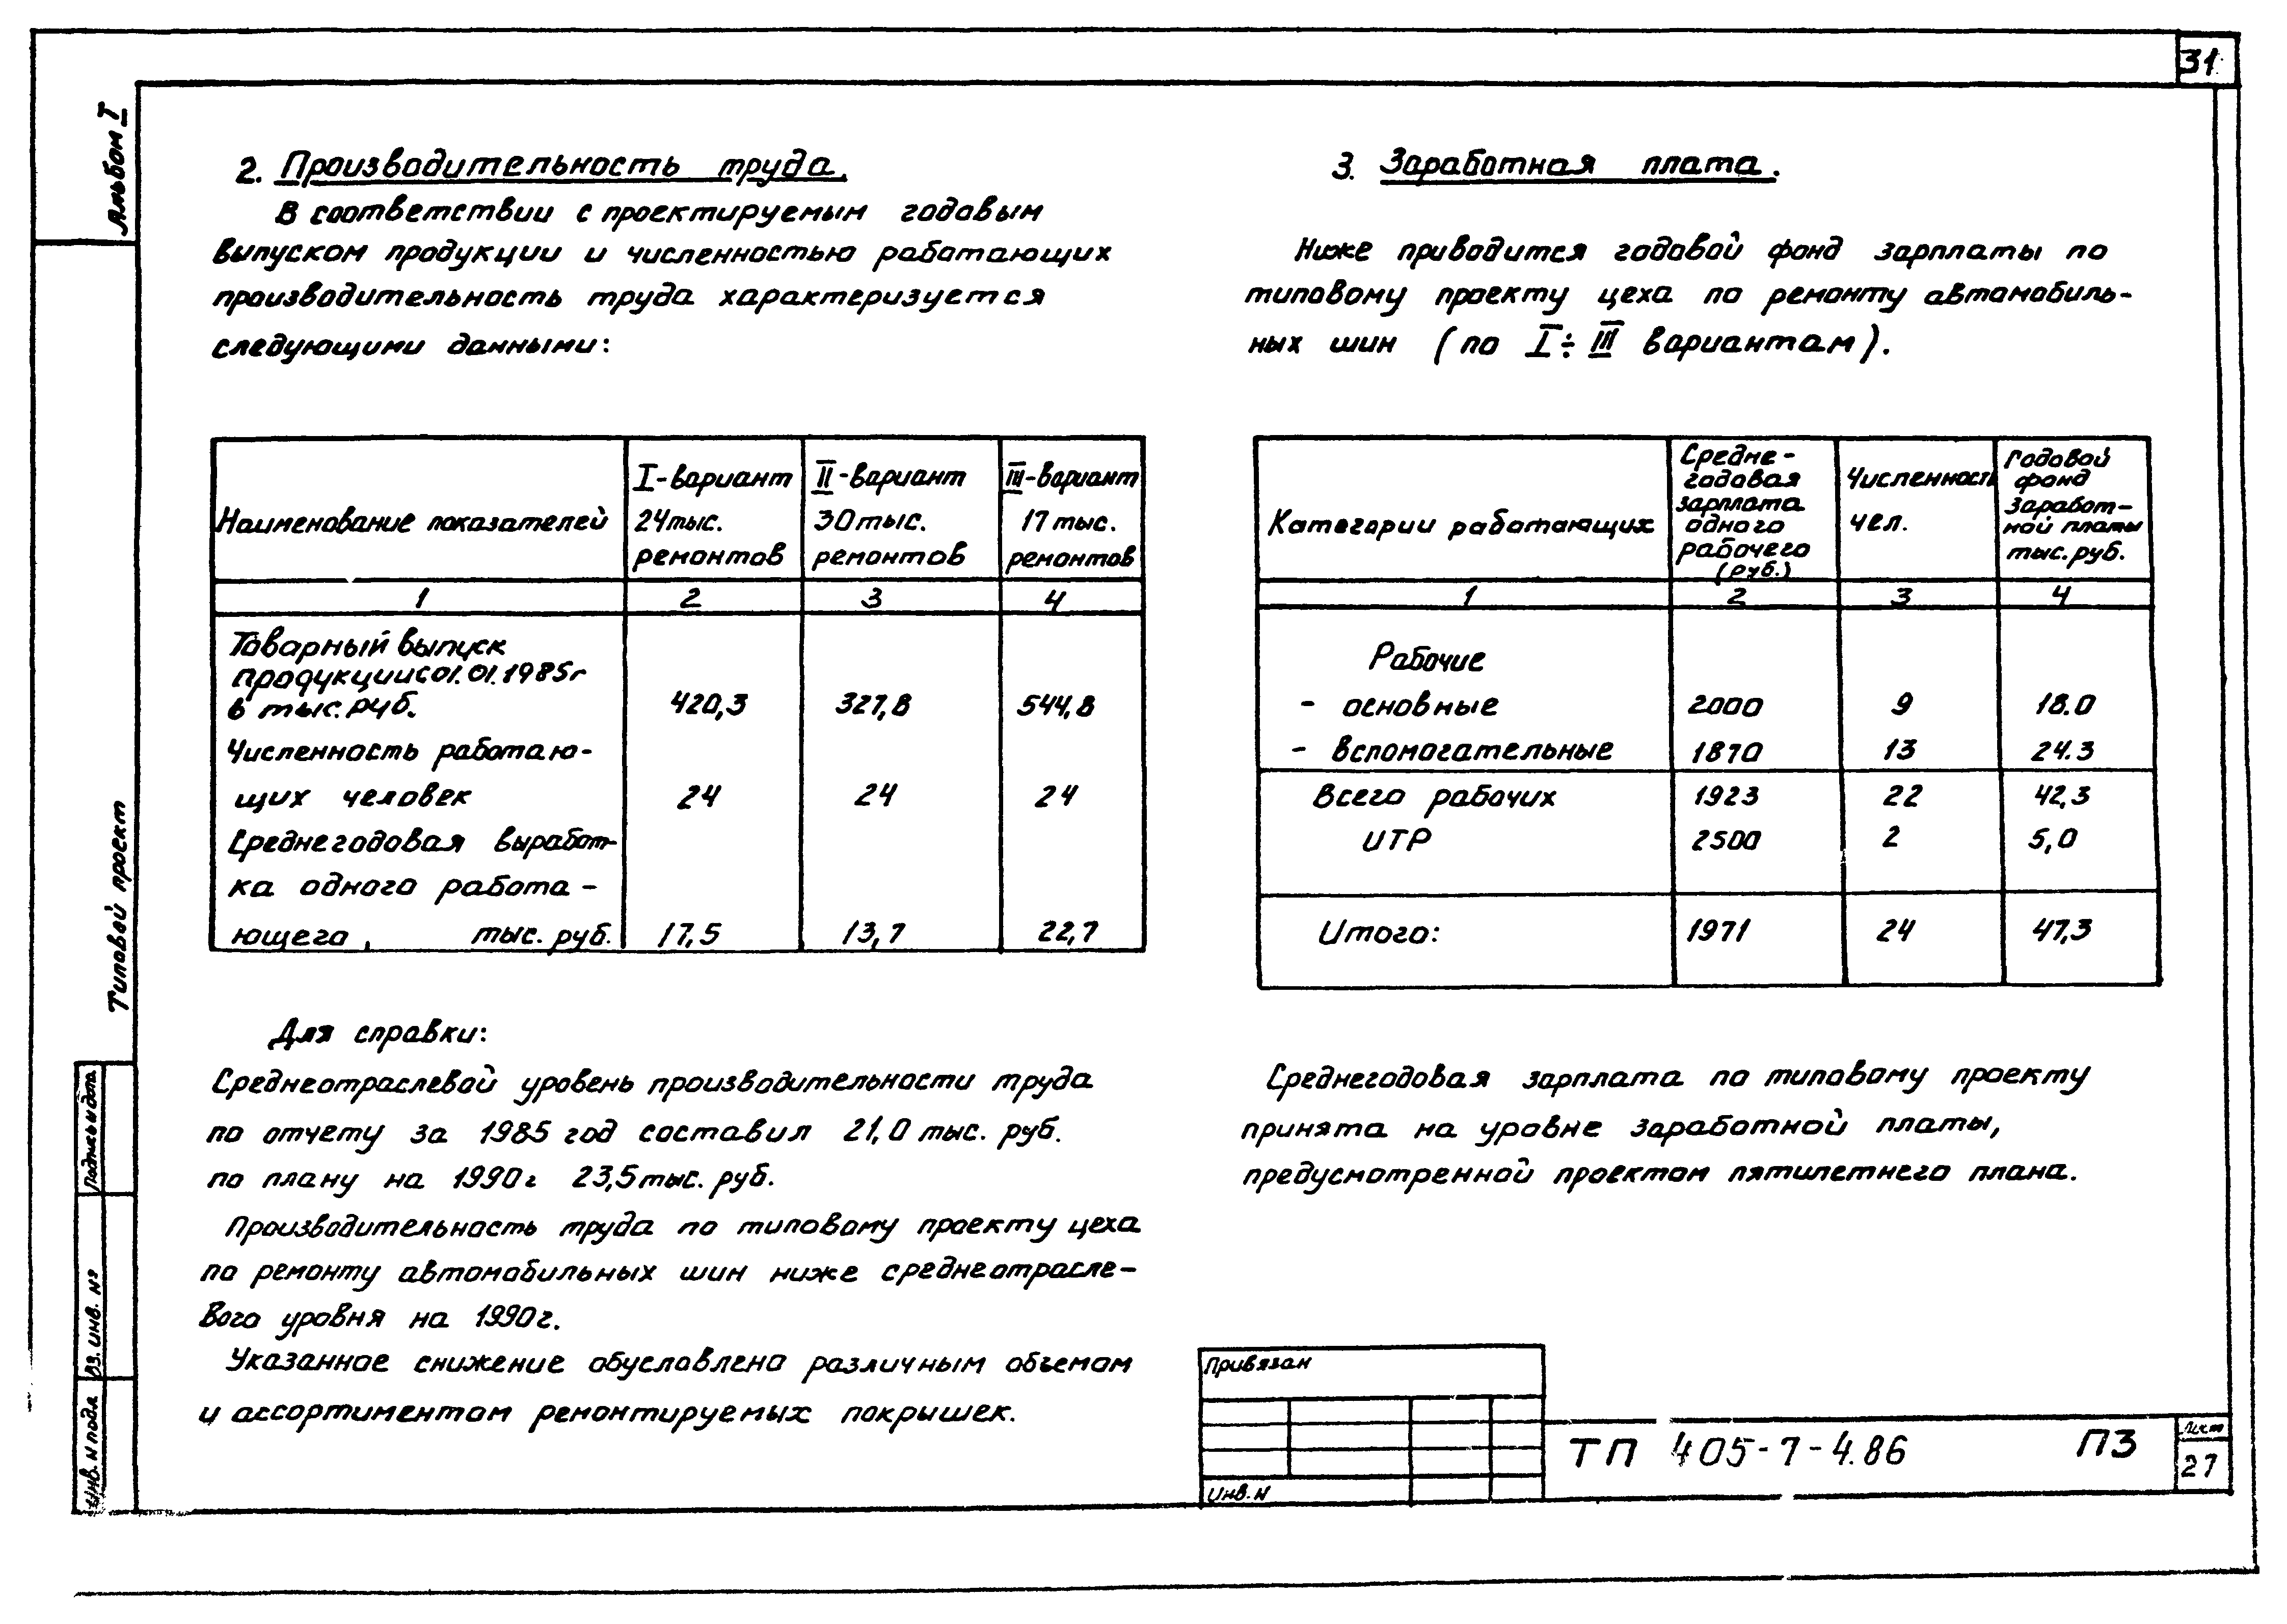 31
Альбом I
2. Производительность труда.
В соответствии с проектируемым годовым
выпуском продукции и численностью работающих
производительность труда характеризуется
следующими данными:
Наименование показателей
I-вариант
24 тыс.
ремонтов
II-вариант
30 тыс.
ремонтов
III-вариант
17 тыс.
ремонтов
1 2 3 4
Товарный выпуск
продукции с 01.01.1985г
в тыс. руб. 420,3 327,8 544,8
Численность работаю-
щих человек 24 24 24
Среднегодовая выработ-
ка одного работа-
ющего, тыс. руб. 17,5 13,7 22,7
Для справки:
Среднеотраслевой уровень производительности труда
по отчету за 1985 год составил 21,0 тыс. руб.
по плану на 1990г 23,5 тыс. руб.
Производительность труда по типовому проекту цеха
по ремонту автомобильных шин ниже среднеотрасле-
вого уровня на 1990г.
Указанное снижение обусловлено различным объемом
и ассортиментом ремонтируемых покрышек.
3. Заработная плата.
Ниже приводится годовой фонд зарплаты по
типовому проекту цеха по ремонту автомобиль-
ных шин (по I÷III вариантам).
Категории работающих
Средне-
годовая
зарплата
одного
рабочего
(руб.)
Численность
чел.
Годовой
фонд
заработ-
ной платы
тыс. руб.
1 2 3 4
Рабочие
- основные 2000 9 18.0
- вспомогательные 1870 13 24.3
Всего рабочих 1923 22 42,3
ИТР 2500 2 5,0
Итого: 1971 24 47,3
Среднегодовая зарплата по типовому проекту
принята на уровне заработной платы,
предусмотренной проектом пятилетнего плана.
Типовой проект
Подпись и дата
Вз. инв. №
Инв. N подл
Привязан
Инв. N
ТП 405-7-4.86 ПЗ
Лист
27